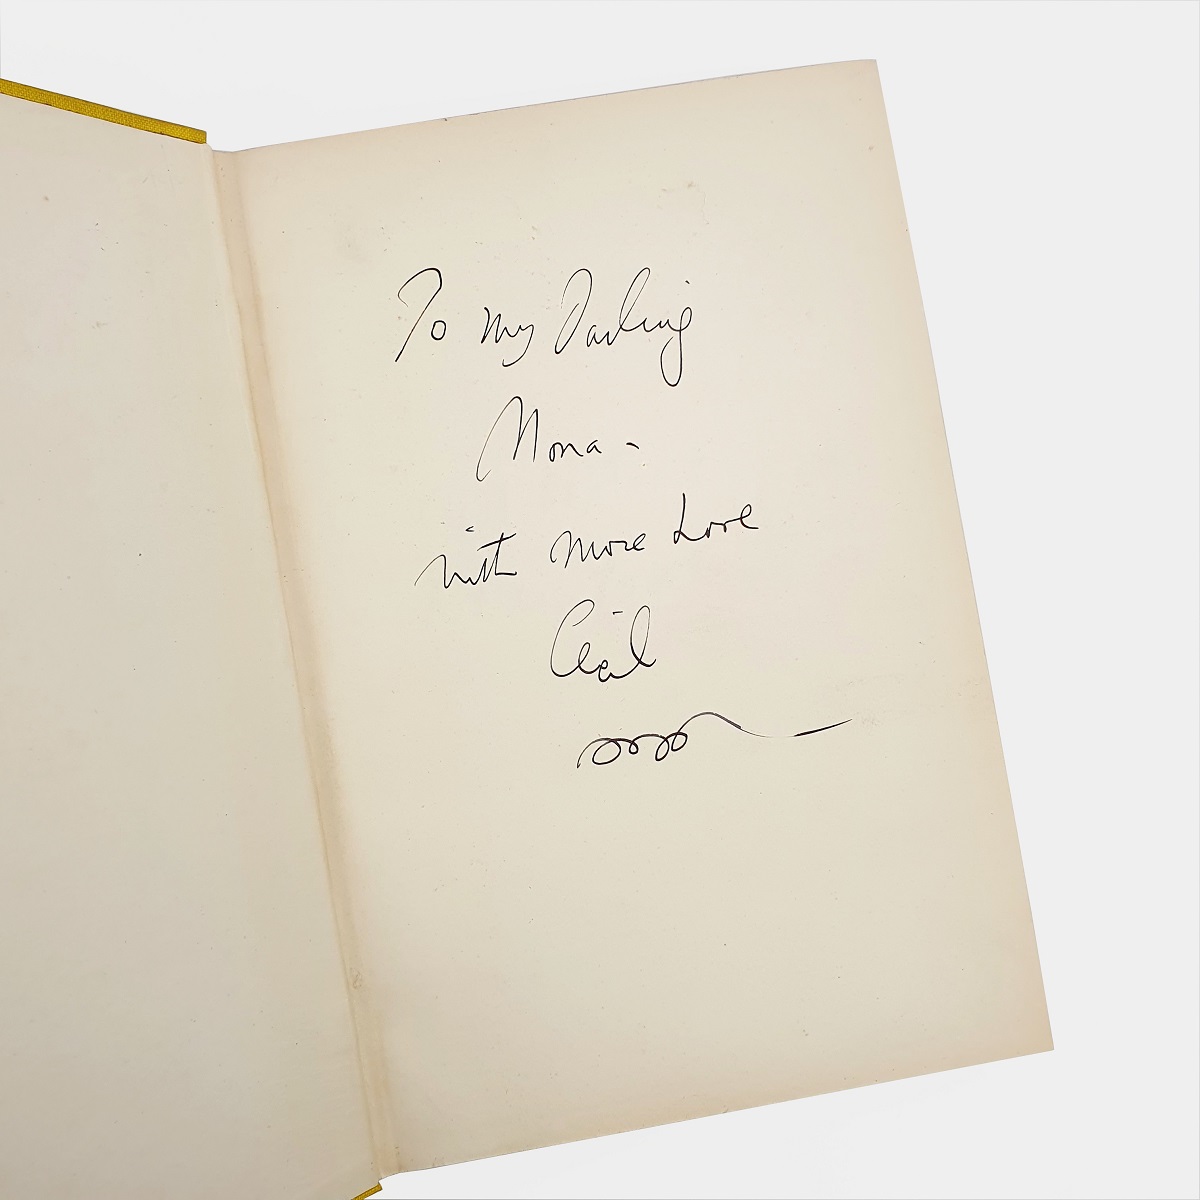 To my Darling
Mona -
with more Love
Cecil